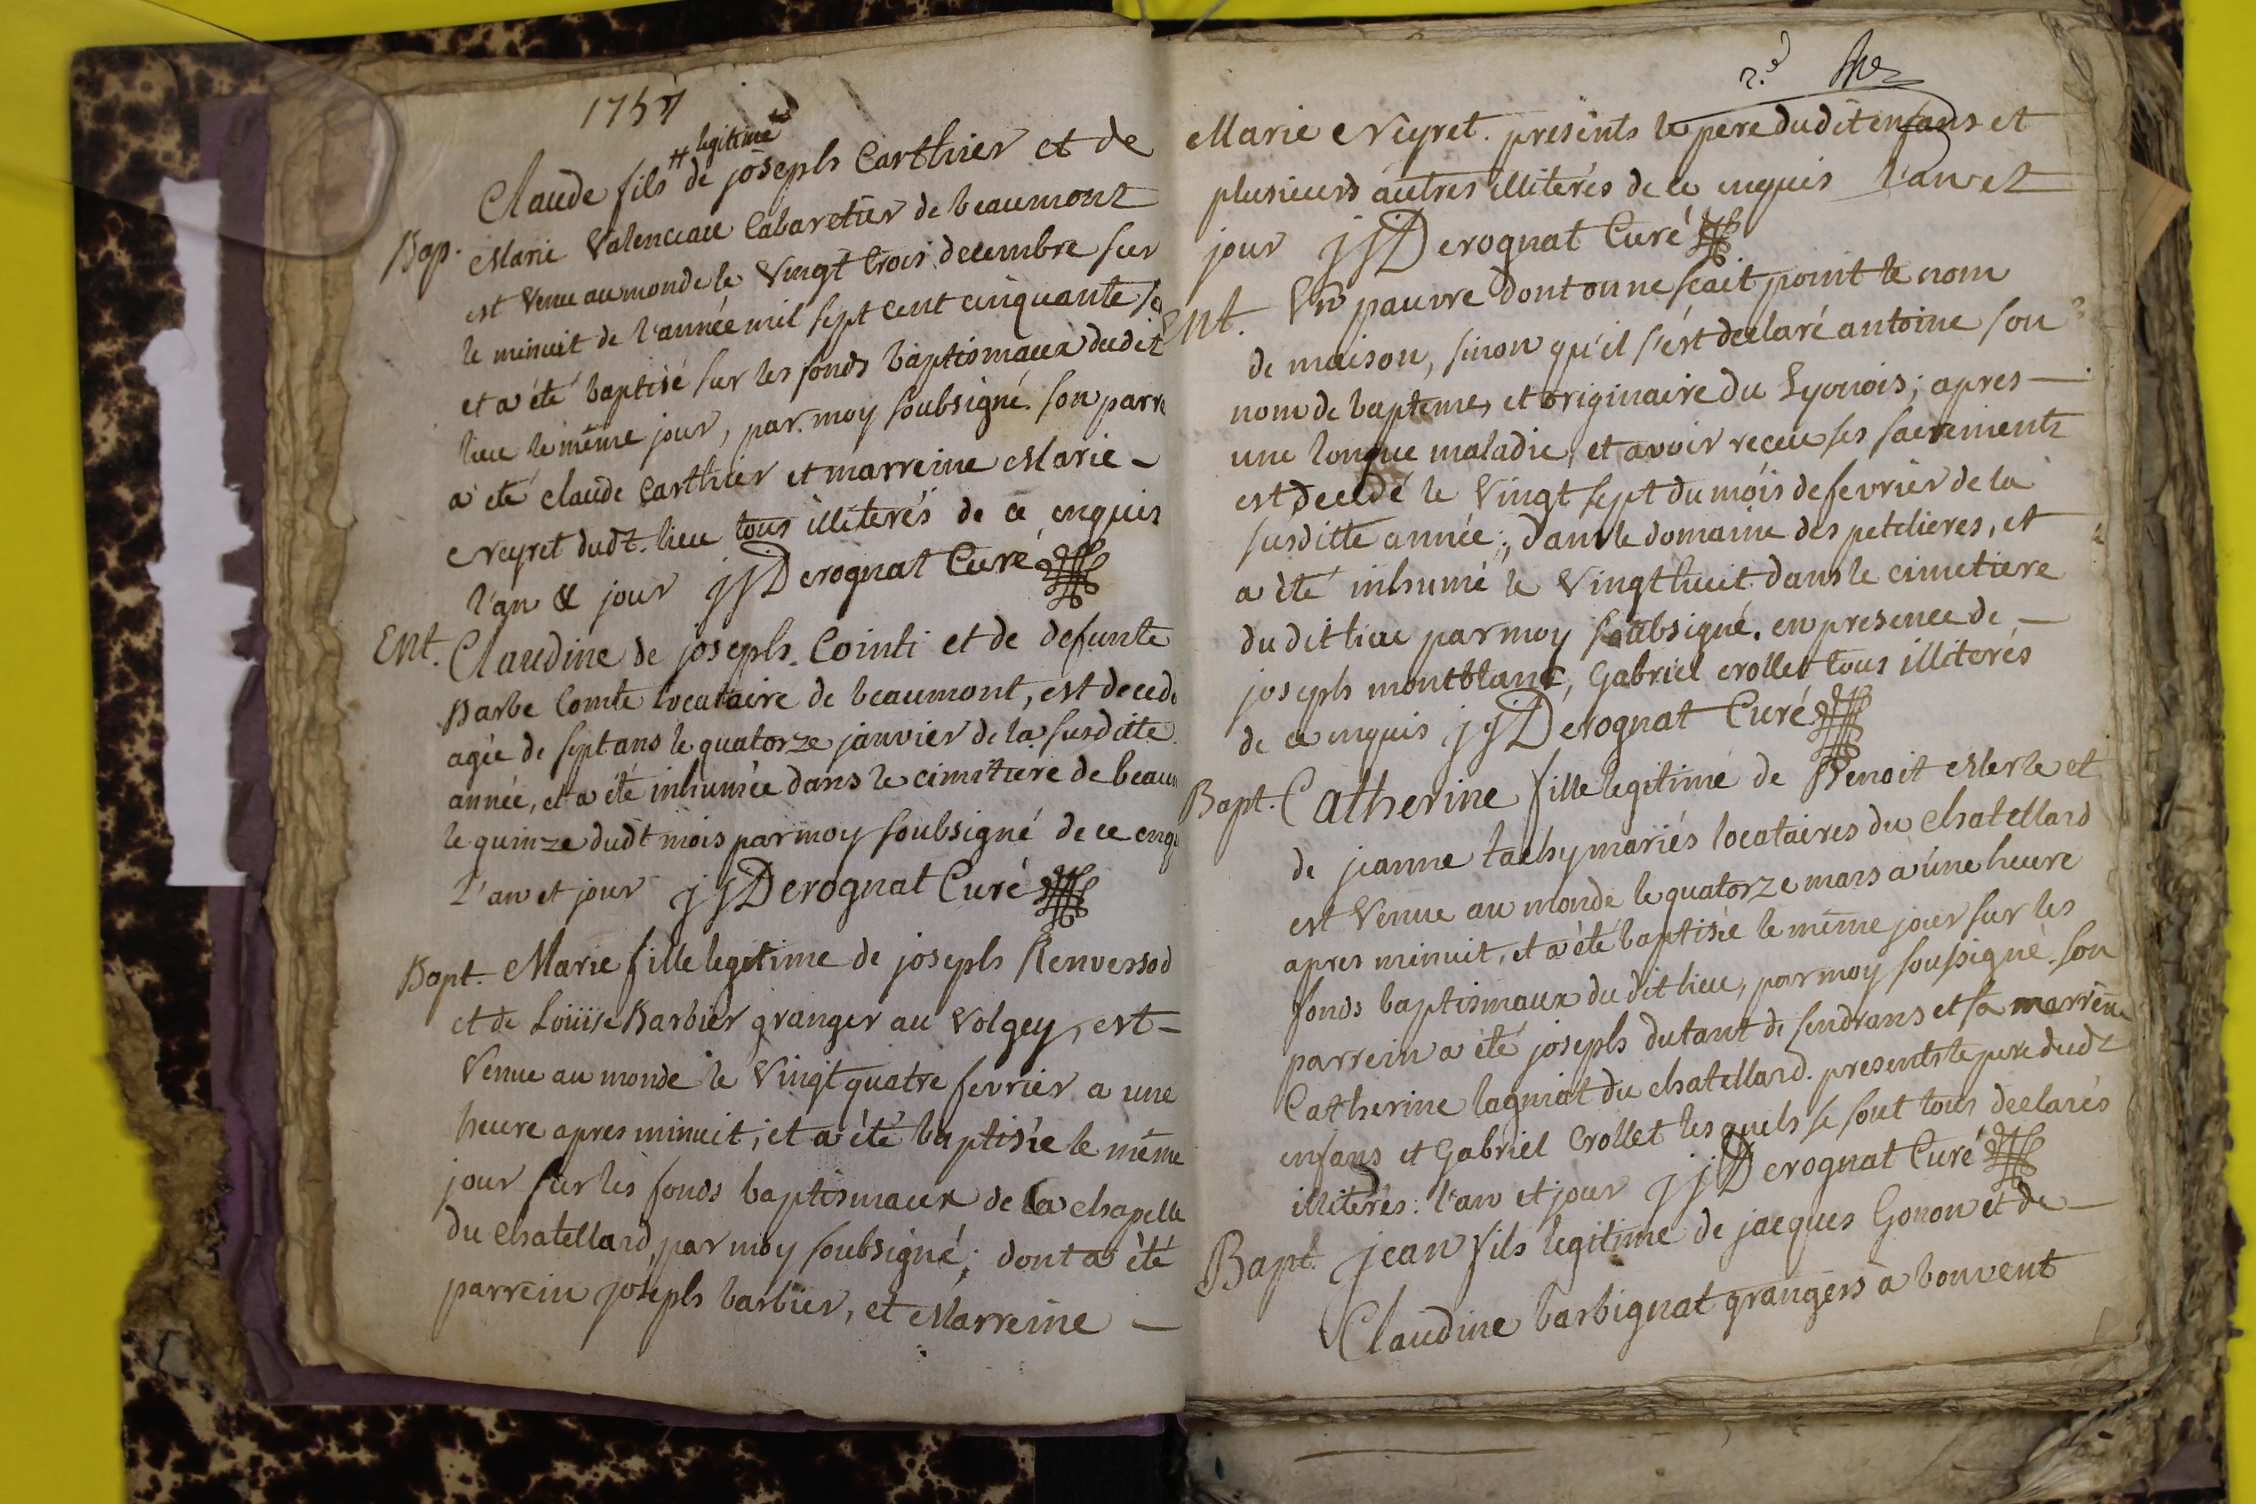 1757
Claude fils # legitime de joseph Carthier et de
Bap. Marie Valenciau Cabaretier de beaumont
est Venu au monde le Vingt trois decembre sur
le minuit de l'année mil sept cent cinquante se
et a été baptisé sur les fonds baptismaux dudit
lieu le même jour, par moy soubsigné. son parre
a été claude Carthier et marreine Marie -
Neyret dudt. lieu tous illiterés de ce enquis
l'an & jour jjDerognat Curé
Ent. Claudine de joseph Cointi et de defunte
Barbe Comte locataire de beaumont, est decede
agée de sept ans le quatorze janvier de la susditte
année, et a été inhumée dans le cimetiere de beaum
le quinze dudt mois par moy soubsigné de ce enqu
l'an et jour jjDerognat Curé
Bapt. Marie fille legitime de joseph Renversod
et de Loüise Barbier granger au Volgey, est -
Venue au monde le Vingt quatre fevrier a une
heure apres minuit; et a été baptisée le même
jour sur les fonds baptismaux de la chapelle
du Chatellard, par moy soubsigné; dont a été
parrein joseph barbier, et Marreine -
2.e
Marie Neyret. presents le pere dudit enfans et
plusieurs autres illiterés de ce enquis l'an et
jour jjDerognat Curé
Ent. Un pauvre dont on ne scait point le nom
de maison, sinon qu'il s'est declaré antoine son
nom de bapteme, et originaire du Lyonois; apres -
une longue maladie, et avoir receu ses sacrements
est decedé le Vingt sept du mois de fevrier de la
susditte année; dans le domaine des petelieres, et
a été inhumé le Vingt huit dans le cimetiere
du dit lieu par moy soubsigné. en presence de -
joseph montblanc, Gabriel crollet tous illiterés
de ce enquis jjDerognat Curé
Bapt. Catherine fille legitime de Benoit Merle et
de jeanne tachy mariés locataires du Chatellard
est Venue au monde le quatorze mars a une heure
apres minuit, et a été baptisée le même jour sur les
fonds baptismaux du dit lieu, par moy soussigné. son
parrein a été joseph dutant de sendrans et sa marreine
Catherine lagniat du chatellard. presents le pere dudt
enfans et Gabriel Crollet les quels se sont tous declarés
illiterés: l'an et jour jjDerognat Curé
Bapt. jean fils legitime de jacques Gonon et de -
Claudine barbignat grangers à bouvent